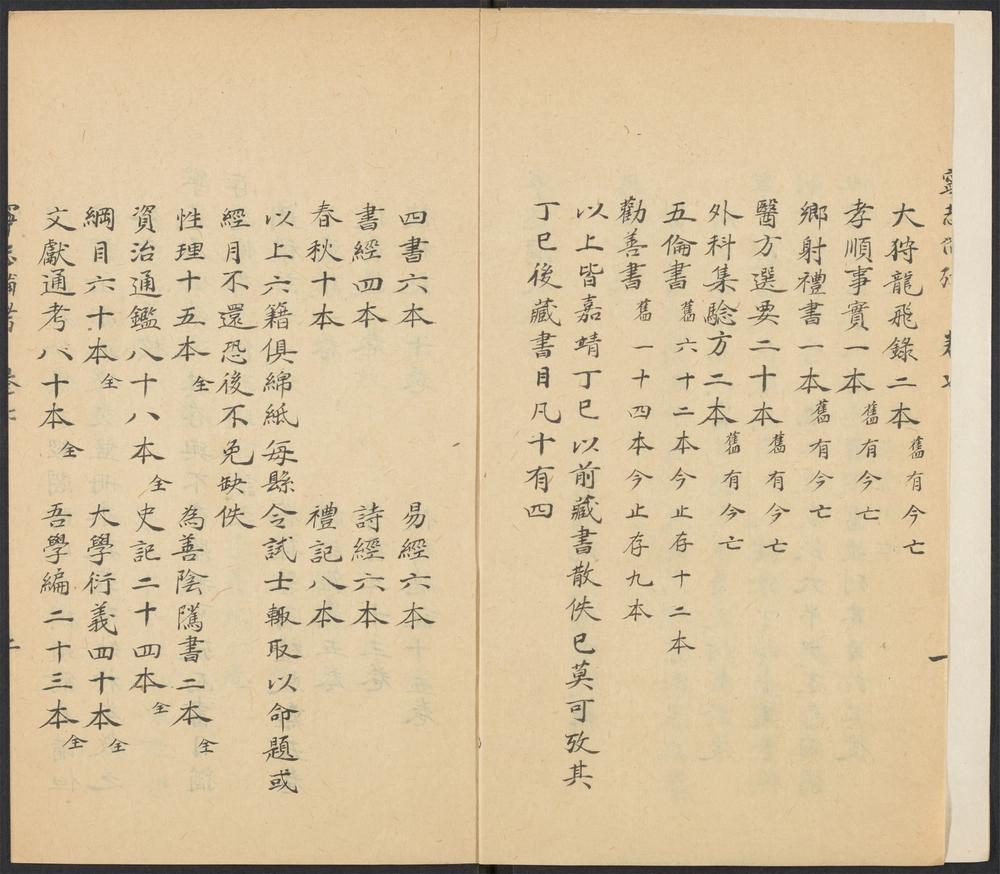 大狩龍飛錄二本舊有今亡
孝順事實一本舊有今亡
鄉射禮書一本舊有今亡
醫方選要二十本舊有今亡
外科集騐方二本舊有今亡
五倫書舊六十二本今止存十二本
勸善書舊一十四本今止存九本
以上皆嘉靖丁巳以前藏書散佚已莫可攷其
丁巳後藏書目凡十有四
一
四書六本 易經六本
書經四本 詩經六本
春秋十本 禮記八本
以上六籍俱綿紙每縣令試士輙取以命題或
經月不還恐後不免缺佚
性理十五本全 為善陰隲書二本全
資治通鑑八十八本全 史記二十四本全
綱目六十本全 大學衍義四十本全
文獻通考八十本全 吾學編二十三本全